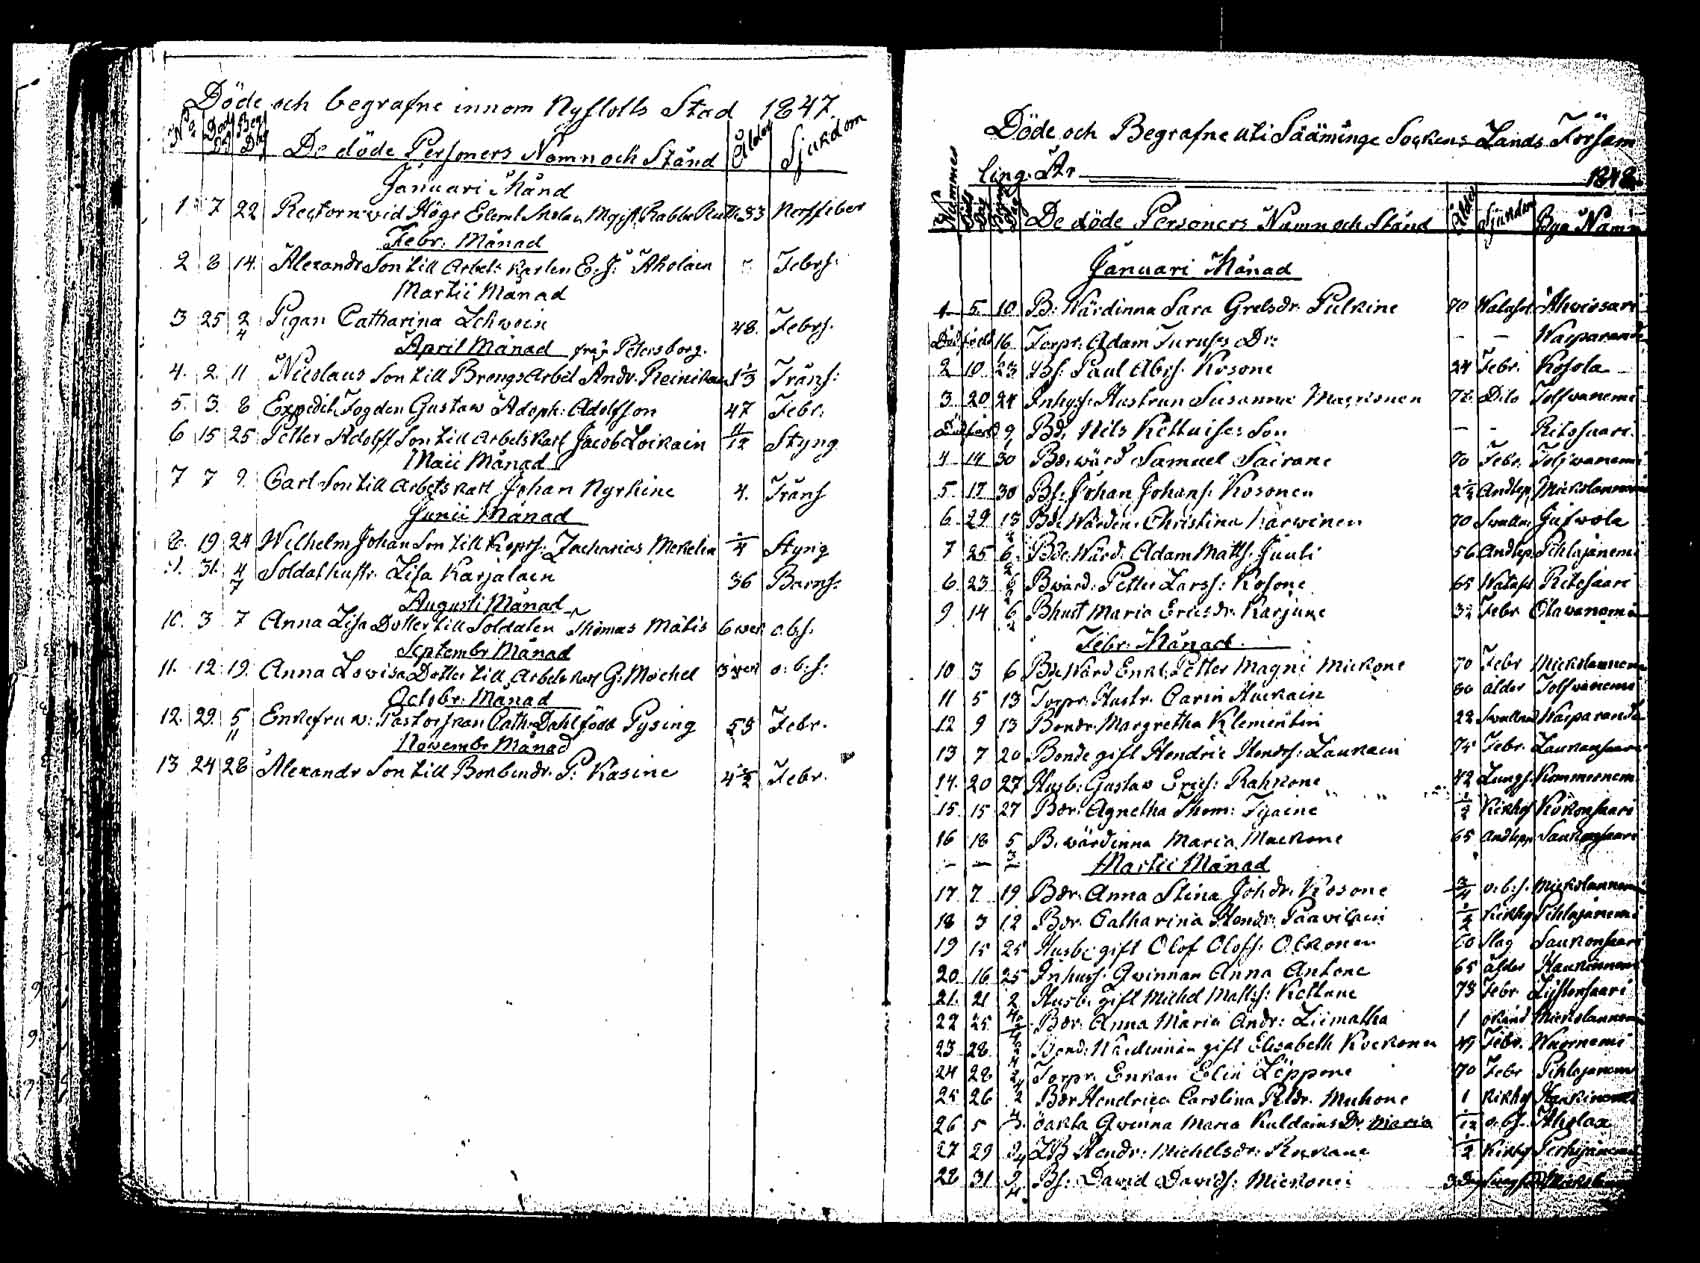 Döde och begrafne innom Nyslotts Stad 1847
No Död Dag Begr Dag De döde Personers Namn och Stånd Ålder Sjukdom
Januari Månd
1. 7 22 Rectorn wid Högr Eleml Skolan Mgift 33 Nerffeber
Febr. Månad
2 8 14. Alexandr Son till Arbets Karlen E. J. Aholain Febrf.
Martii Månad
3 25 2/4 Pigan Catharina Lehwoin 48. Febrf.
April Månad från Petersborg.
4. 2 11 Nicolaus Son till Arbet Andr. Reinikain 1 1/3 Tränf:
5. 3. 8 Expedit Fogden Gustaw Adoph: Adolfson 47 Febr:
6 15 25 Petter Adolff Son till Arbets Karl Jacob Loikain 11/12 Styng
Maii Månad
7 7 9. Carl Son till Arbets Karl Johan Nyrhine 4. Tränf
Junii Månad
8. 19 24 Wilhelm Johan Son till Zacharias Merelin Styng
9. 31. 4/7 Soldat hustr. Lisa Karjalain 36 Barnf:
Augusti Månad
10. 3 7 Anna Lisa Dotter till Soldaten Thomas Matis 6 wek o.b.f.
Septembr Månad
11. 12 19. Anna Lowisa Dotter till Arbets Karl G. Mochel 3 wek o: b: f:
Octobr. Månad
12. 29 5/11 Enkefru w: Pastorskan Cath: Dahl född Pysing 53 Febr.
Novembr Månad
13 24 28 Alexandr Son till P: Kasine 4 1/2 Febr.
Döde och Begrafne uti Sääminge Sockens Lands Försam
ling År 1848
Nummer De döde Personers Namn och Stånd Ålder Sjukdom Bya Namn
Januari Månad
1. 5. 10 B: Wärdinna Sara Gretsdr. Pulkine 70 Watufot Ahwiosari
Död född 16 Torpr. Adam Turuses Dr: – – Warparanda
2 10 23 Bf: Paul Abrf. Kosone 24 Febr. Kosola
3 20 24 Inhysf: Hustrun Susanna Mackonen 72. Dito Tolfwanemi
Död född 9 Bd. Nils Kettuises Son – – Ritosaari
4 14 30 Bd: wärd Samuel Sairane 70 Febr. Tolfwanemi
5. 17 30 Bf: Johan Johanf: Kosonen 2 1/2 Andtep Mickolanniemi
6. 29 13 Bd. Wärdin: Christina Kärwinen 70 Swullna Juswola
7 25 6/2 Bde Wärd. Adam Mattf. Juuti 56 Andtep Pihlajanemi
8 23 6/2 B wärd: Petter Larss: Kosone 65 Watufot Ritosaari
9 14 6/2 B hust Maria Ericsdr. Karjune 32 Febr Olawanemi
Febr. Månad
10 3 6 Bd Wärd Enkl: Petter Magni Mickone 70 Febr Mickolannemi
11 5 13 Torpr. Hustr. Carin Auikain 80 ålder Tolfwanemi
12 9 13 Bondr. Margretha Klementin 22 Swullna Warparanda
13 7 20 Bonde gift Hendric Hendrf: Laukain 75 Febr. Laukansaari
14. 20 27 Husb: Gustaw Ericf: Rahkone 42 Lungf. Kommernem
15 15 27 Bdr: Agnetha Thom: Tijaine 1/2 Kikhof Kokonsaari
16 18 5/3 B. wärdinna Maria Mackone 65 Andtepp Saukonsaari
Martii Månad
17 7 19 Bdr. Anna Stina Joh:dr. Kosone 3/4 o: b: f. Mickolannemi
18 3 12 Bdr. Catharina Hendr: Paavilain 1/2 Kikhof Pihlajanemi
19 15 25 Husb: gift Olof Oloff: Olkonen 60 Slag Saukonsaari
20. 16 25 Inhysf: Qwinnan Anna Antone 65 ålder Haukinnemi
21. 21 2 Husb: gift Michel Mattsf: Kettune 73 Febr. Liistonsaari
22 25 Bdr: Anna Maria Andr: Liimattha 1 okänd Mickolannemi
23 28 Bond: Wärdinnan gift Elisabeth Kockonen 47 Febr. Wuornemi
24 28 2/4 Torpr. Enkan Elin Loppone 70 Febr Pihlajanem
25 26 2 Bdr Hendrica Carolina Petdr. Muhone 1 Kikhof Haukinnemi
26 5 ökta Qwinna Maria Kuldains Dr Maria 1/12 o.b.f. Aholax
27 29 9/4 Hendr: Michelsdr: Kukane 1/2 Kikhof
28 31 9/4 Bf: David Davidf: Mickonei